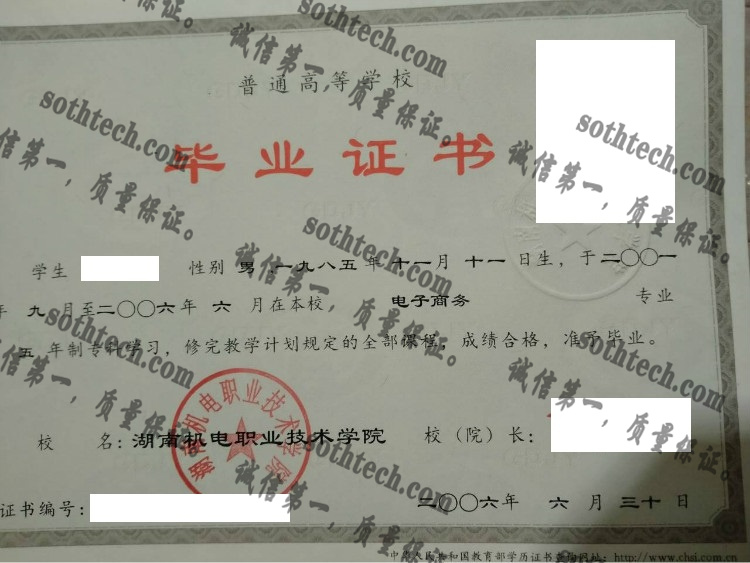 普通高等学校
毕业证书
学生 性别 男, 一九八五年 十一月 十一 日生, 于二〇〇一
年 九 月至二〇〇六年 六 月在本校, 电子商务 专业
五 年制专科学习, 修完教学计划规定的全部课程, 成绩合格, 准予毕业。
校 名: 湖南机电职业技术学院 校（院）长:
湖南机电职业技术学院
证书编号: 二〇〇六年 六 月 三十 日
中华人民共和国教育部学历证书查询网址: http://www.chsi.com.cn
sothtech.com
诚信第一，质量保证。
sothtech.com
诚信第一，质量保证。
sothtech.com
诚信第一，质量保证。
sothtech.com
诚信第一，质量保证。
sothtech.com
诚信第一，质量保证。
sothtech.com
诚信第一，质量保证。
sothtech.com
诚信第一，质量保证。
sothtech.com
诚信第一，质量保证。